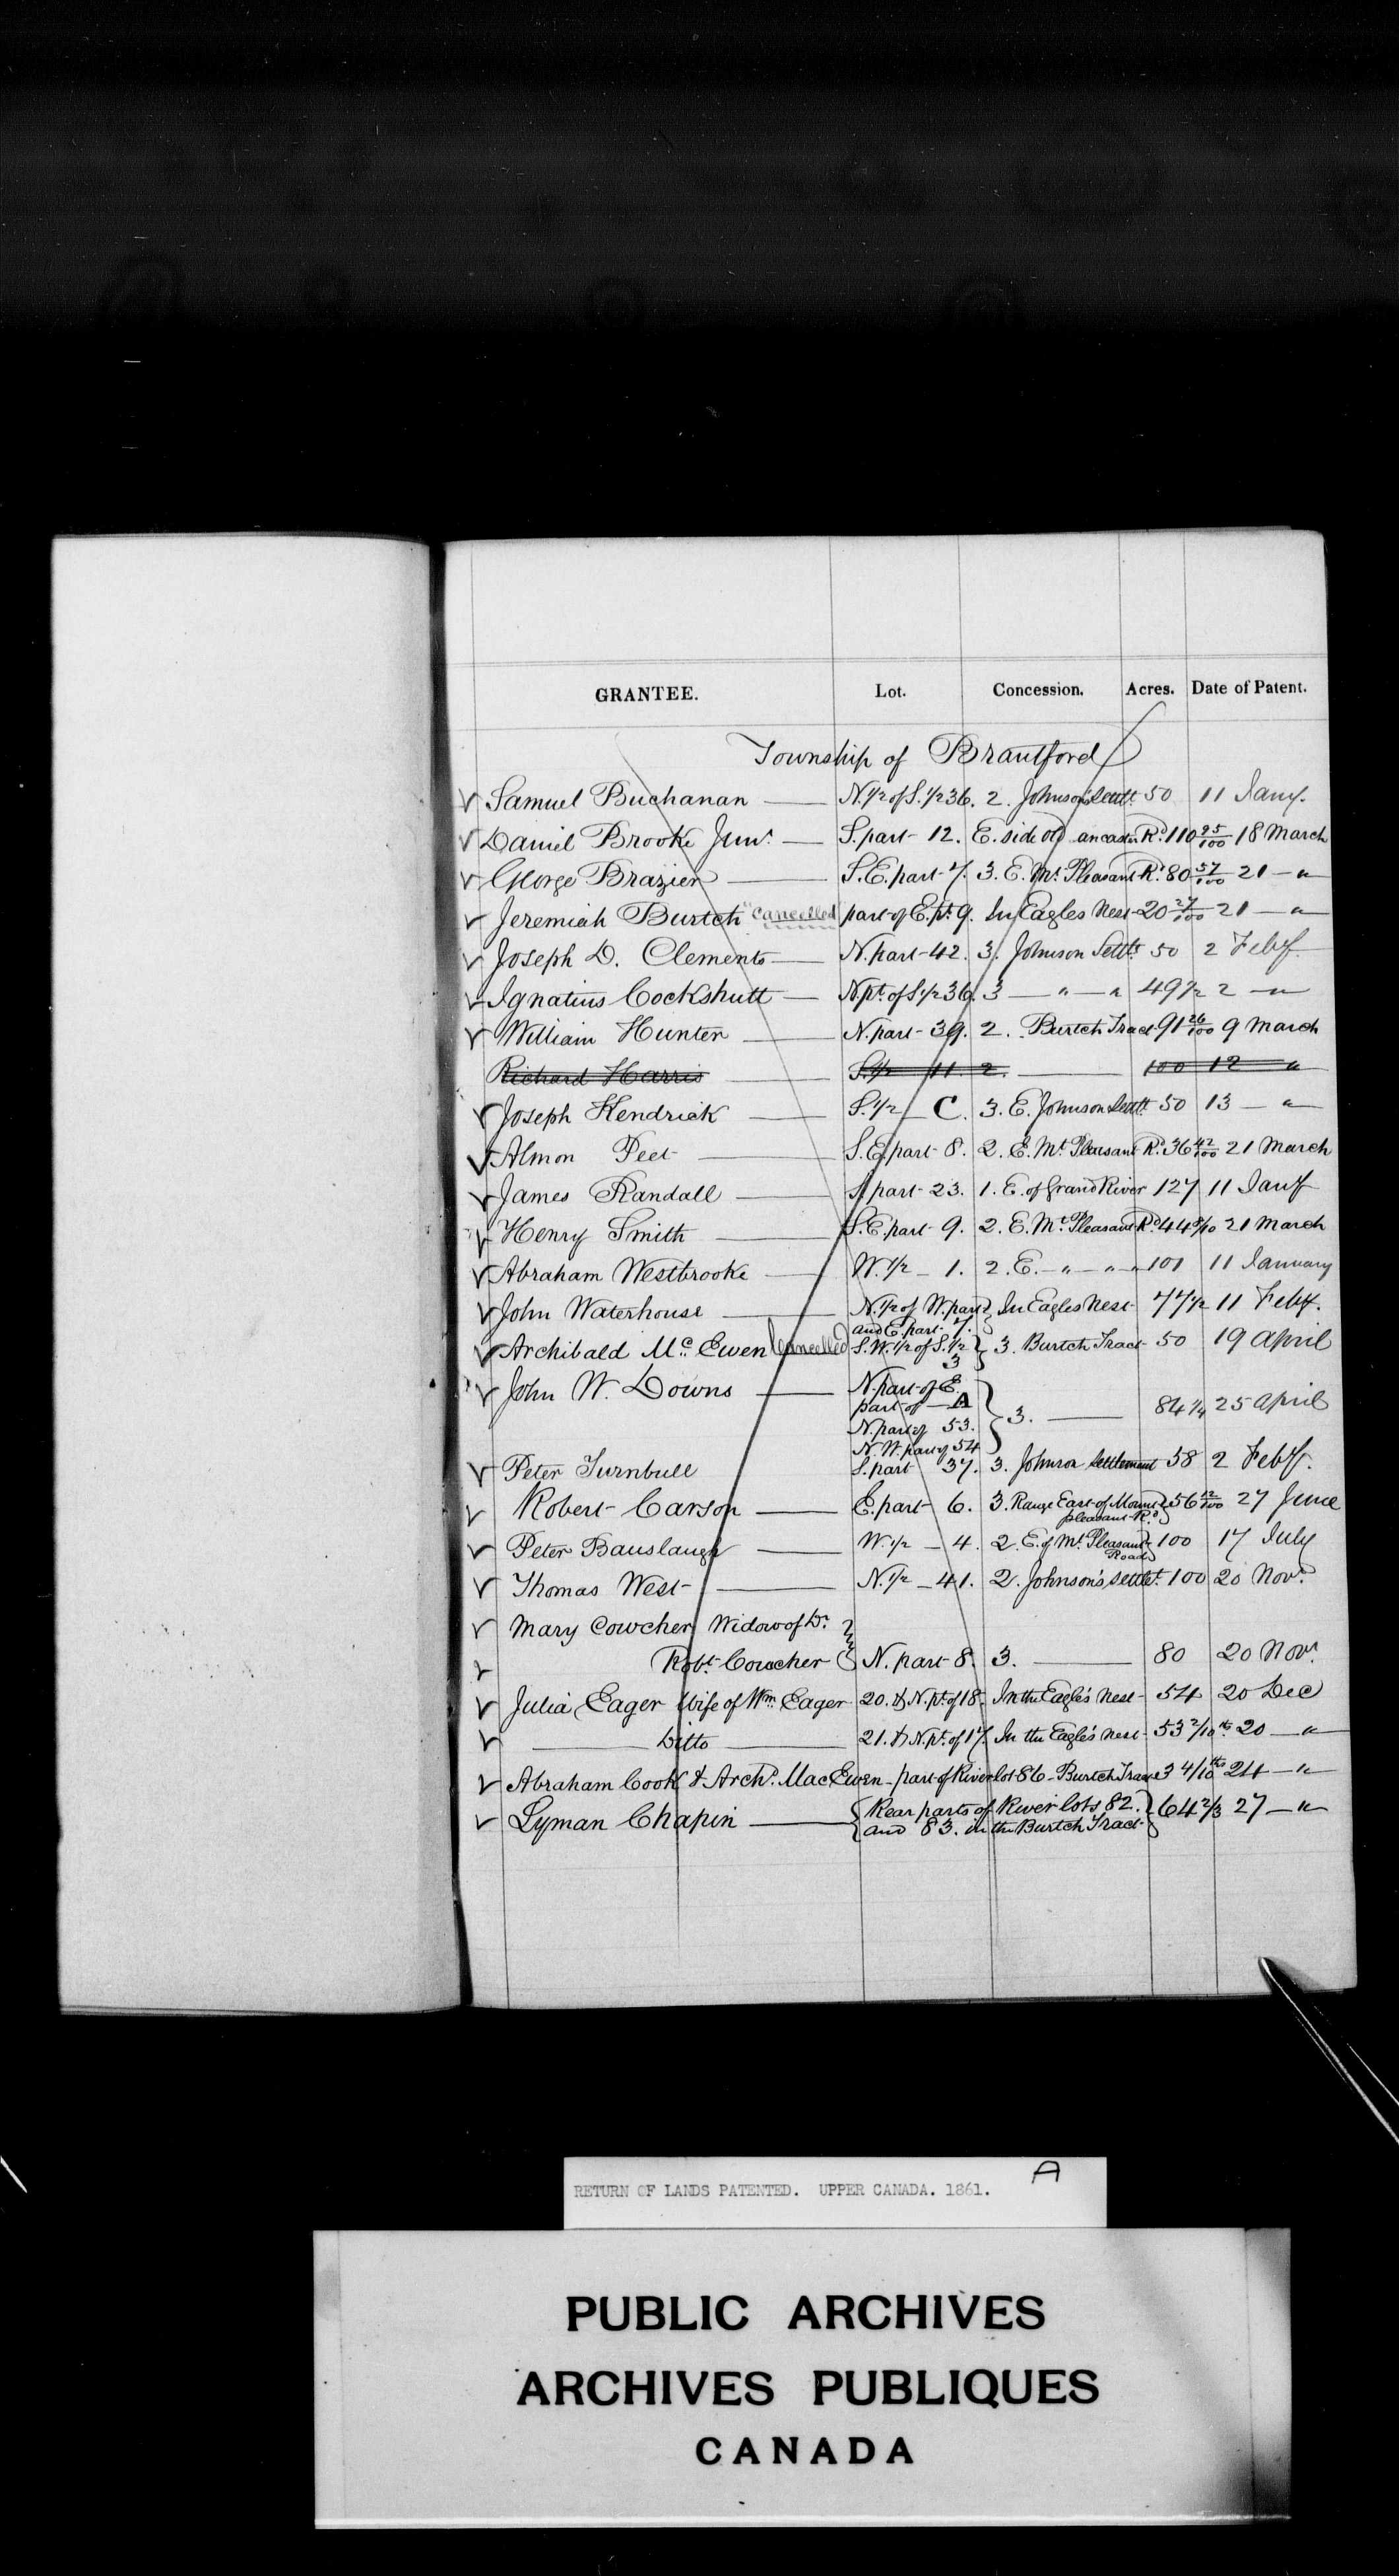 GRANTEE. Lot. Concession. Acres. Date of Patent.
Township of Brantford
Samuel Buchanan — N. 1/2 of S. 1/2 36. 2. Johnson's Settlt. 50 11 Jany.
Daniel Brooke Junr. — S. part - 12. E. side old ancaster Rd. 110 95/100 18 March
George Brazier — S. E. part 7. 3. E. Mt. Pleasant Rd. 80 57/100 21 — "
Jeremiah Burtch "Cancelled" part of E. pt. 9. In Eagles Nest - 20 27/100 21 — "
Joseph D. Clements — N. part - 42. 3. Johnson Settlt. 50 2 Feby.
Ignatius Cockshutt — N. pt. of S. 1/2 36. 3 — " — " 49 1/2 2 — "
William Hunter — N. part - 39. 2. Burtch Tract 91 26/100 9 March
Richard Harris — S. 1/2 11. 2. — 100 12 "
Joseph Kendrick — S. 1/2 — C. 3. E. Johnson Settlt. 50 13 — "
Almon Peet — S. E. part - 8. 2. E. Mt. Pleasant Rd. 36 42/100 21 March
James Randall — S. part - 23. 1. E. of Grand River 127 11 Jany
Henry Smith — S. E. part - 9. 2. E. Mt. Pleasant Rd. 44 8/10 21 March
Abraham Westbrooke — W. 1/2 — 1. 2. E. — " — " — 101 11 January
John Waterhouse — N. 1/2 of W. part In Eagles Nest - 77 1/2 11 Feby.
and E. part - 7.
Archibald Mc. Ewen Cancelled S. W. 1/2 of S. 1/2 3. Burtch Tract - 50 19 April
3
John W. Downs — N. part of E.
part of — A 3. — 84 1/4 25 April
N. part of 53.
N. W. part of 54
Peter Turnbull S. part 37. 3. Johnson Settlement 58 2 Feby.
Robert Carson — E. part 6. 3. Range East of Mount 56 12/100 27 June
pleasant Rd.
Peter Bauslaugh — W. 1/2 — 4. 2. E. of Mt. Pleasant 100 17 July
Road
Thomas West — N. 1/2 — 41. 2. Johnson's settlet. 100 20 Novr.
Mary Cowcher Widow of Dr.
Robt. Cowcher N. part 8. 3. — 80 20 Novr.
Julia Eager Wife of Wm. Eager 20. & N. pt. of 18. In the Eagle's nest - 54 20 Dec
— Ditto — 21. & N. pt. of 17. In the Eagle's nest - 53 2/10ths 20 — "
Abraham Cook & Archd. MacEwen - part of River lot 86 - Burtch Tract 3 4/10ths 24 — "
Lyman Chapin — Rear parts of River lots 82. 64 2/3 27 — "
and 83. in the Burtch Tract
RETURN OF LANDS PATENTED. UPPER CANADA. 1861. A
PUBLIC ARCHIVES
ARCHIVES PUBLIQUES
CANADA